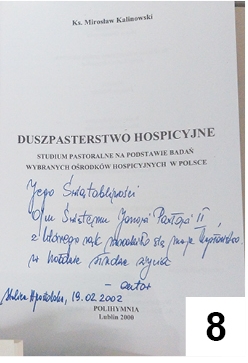 Ks. Mirosław Kalinowski
DUSZPASTERSTWO HOSPICYJNE
STUDIUM PASTORALNE NA PODSTAWIE BADAŃ
WYBRANYCH OŚRODKÓW HOSPICYJNYCH W POLSCE
Jego Świątobliwości
Ojcu Świętemu Janowi Pawłowi II
z którego rąk się moje kapłaństwo
w hołdzie
– autor
Stolica Apostolska, 19.02.2002
POLIHYMNIA
Lublin 2000
8